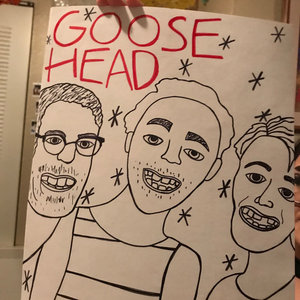 GOOSE
HEAD